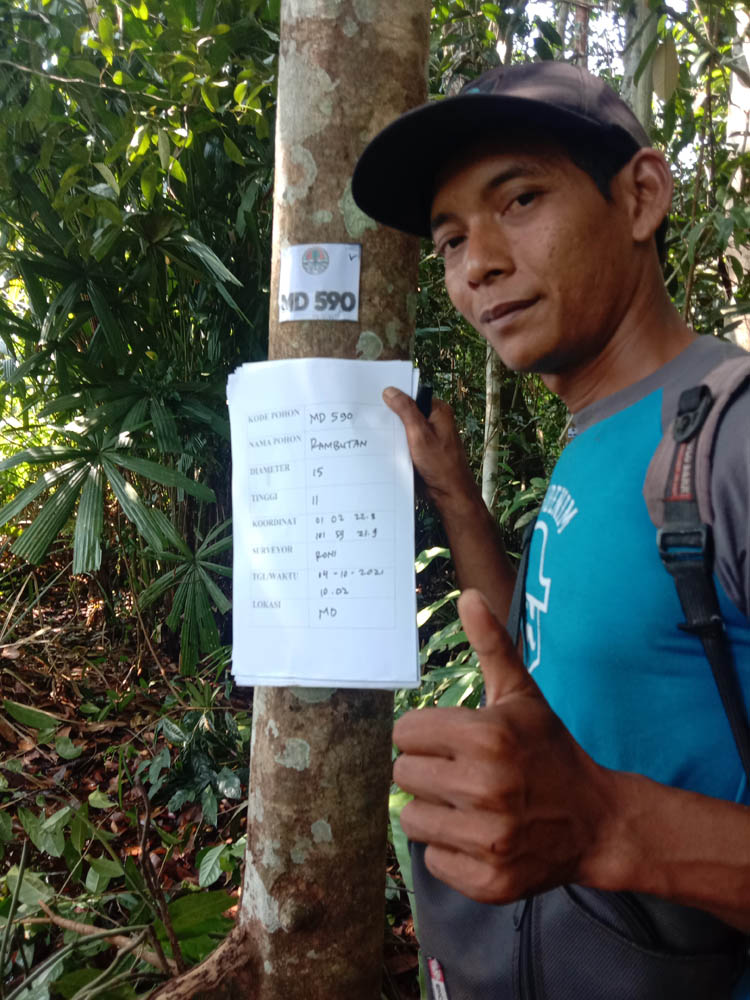 MD 590
KODE POHON MD 590
NAMA POHON RAMBUTAN
DIAMETER 15
TINGGI 11
KOORDINAT 01 02 22.8
101 59 21.9
SURVEYOR RONI
TGL/WAKTU 04-10-2021
10.02
LOKASI MD